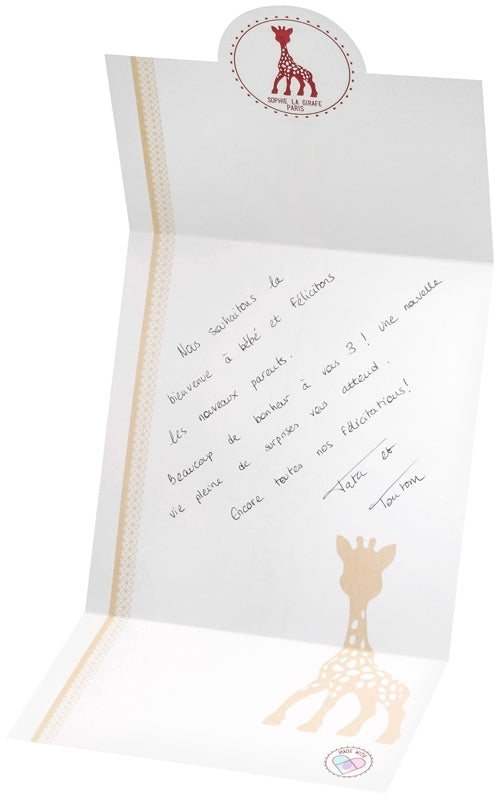 SOPHIE LA GIRAFE
PARIS
Nous souhaitons la
bienvenue à bébé et félicitons
les nouveaux parents.
Beaucoup de bonheur à vous 3!! Une nouvelle
vie pleine de surprises vous attend.
Encore toutes nos félicitations!
Tata et
Tonton
MADE WITH